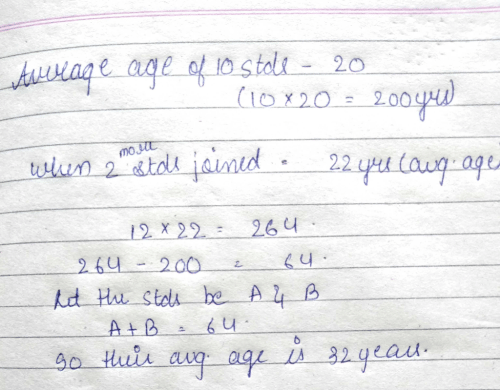 Average age of 10 stds - 20
(10 × 20 = 200yrs)
when 2 more stds joined = 22 yrs (avg. age)
12 × 22 = 264.
264 - 200 = 64.
Let the stds be A & B
A + B = 64.
So their avg. age is 32 years.